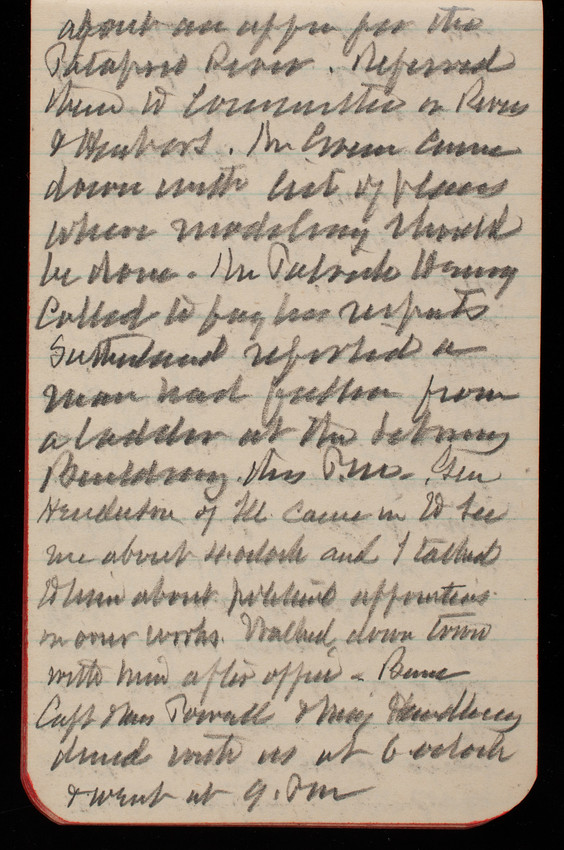 about an appn for the
Patapsco River. Referred
them to Committee on Rivers
& Harbors. Mr Green came
down with list of places
where modeling should
be done. Mr Patrick Henry
Called to pay his respects
Sutherland reported a
man had fallen from
a ladder at the Library
Building this P.M. Gen
Henderson of Ill. came in to see
me about 4 oclock and I talked
to him about political appointees
on our works. Walked down town
with him after office -
Capt & Mrs Powell & Maj Handbury
dined with us at 6 oclock
& went at 9. P.M